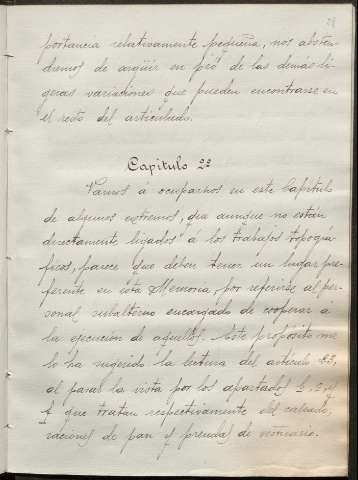 portancia relativamente pequeña, nos absten-
dremos de argüir en pró de las demás li-
geras variaciones que pueden encontrarse en
el resto del articulado.
Capitulo 2º
Vamos á ocuparnos en este Capítulo
de algunos extremos, que aunque no están
directamente ligados á los trabajos topográ-
ficos, parece que deben tener un lugar pre-
ferente en esta Memoria, por referirse al per-
sonal subalterno encargado de cooperar á
la ejecucion de aquellos. Este propósito me
lo ha sugerido la lectura del articulo 63,
al pasar la vista por los apartados
que tratan respectivamente del calzado,
raciones de pan y prendas de vestuario.